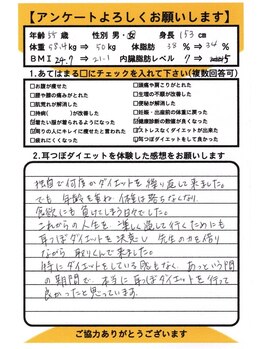 【アンケートよろしくお願いします】
年齢 55 歳 性別 男・女 身長 153 cm
体重 58.4kg ⇒ 50 kg 体脂肪 38 % ⇒ 34 %
BMI 24.7 ⇒ 21.1 内臓脂肪レベル 7 ⇒ 5
1.あてはまる□にチェックを入れて下さい(複数回答可)
□お腹が痩せた
□腰や膝の痛みがとれた
□肌荒れが解消した
□持病が
□着たい服が着られるようになった
□冷えが改善した
□便秘が解消した
□体が疲れにくくなった
□生理の不順が改善した
□便秘が解消した
□姿勢が
□健康診断の数値が良くなった
□ストレスなくダイエットが出来た
□正しい食事が
2.耳つぼダイエットを体験した感想をお願いします
独自で何度かダイエットを繰り返して来ました。
でも年齢を重ね、体重は落ちなくなり、
食欲にも負けてしまう日々でした。
これからの人生を楽しく過して行くためにも
耳つぼダイエットを決意し先生の力を借り
ながら取りくんで来ました。
特にダイエットをしている感もなく、あっという間
の期間で、本当に耳つぼダイエットを行って
良かったと思っています。
ご協力ありがとうございます